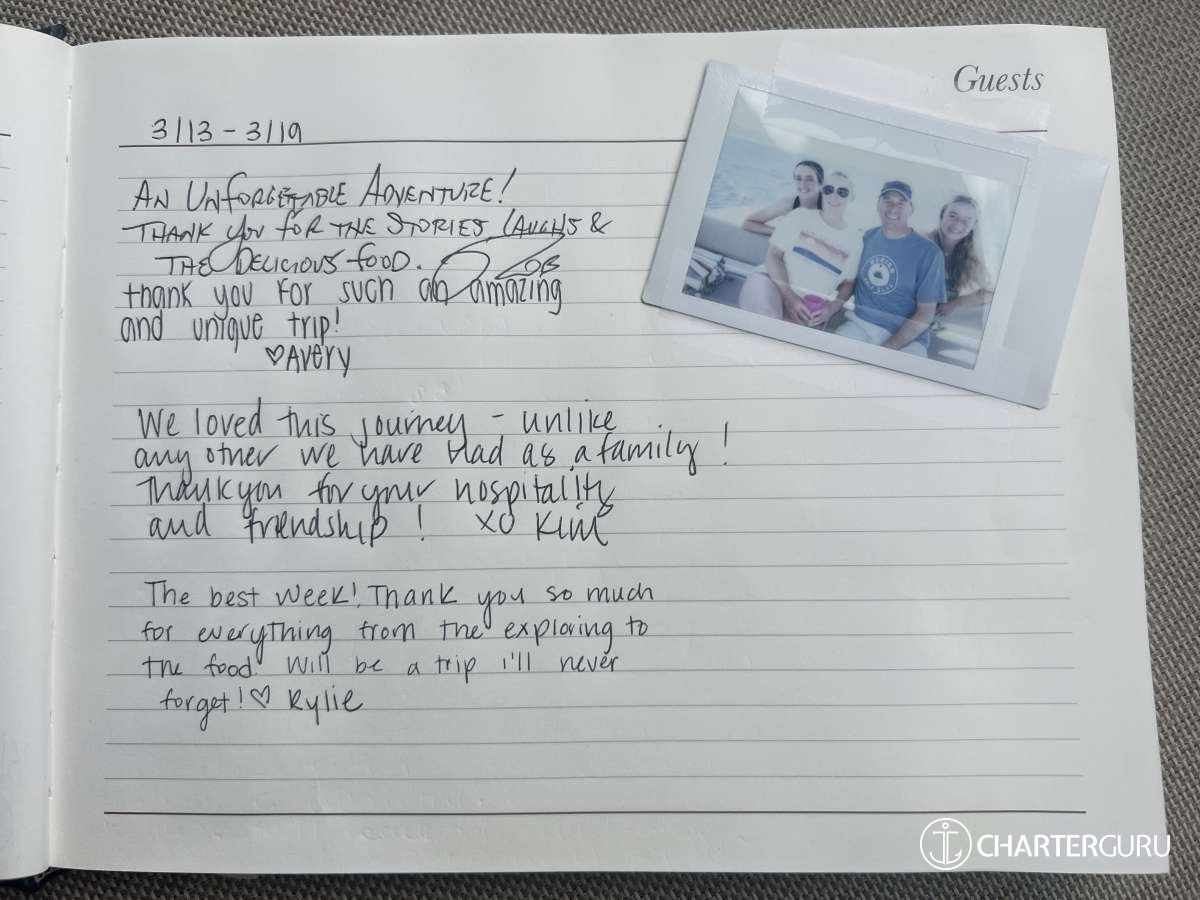 Guests
3/13 - 3/19
AN UNFORGETTABLE ADVENTURE!
THANK YOU FOR THE STORIES LAUGHS &
THE DELICIOUS FOOD. ROB
thank you for such an amazing
and unique trip!
♡Avery
We loved this journey - unlike
any other we have had as a family!
Thank you for your hospitality
and friendship! XO Kim
The best week! Thank you so much
for everything from the exploring to
the food. Will be a trip i'll never
forget! ♡ Rylie
CHARTERGURU